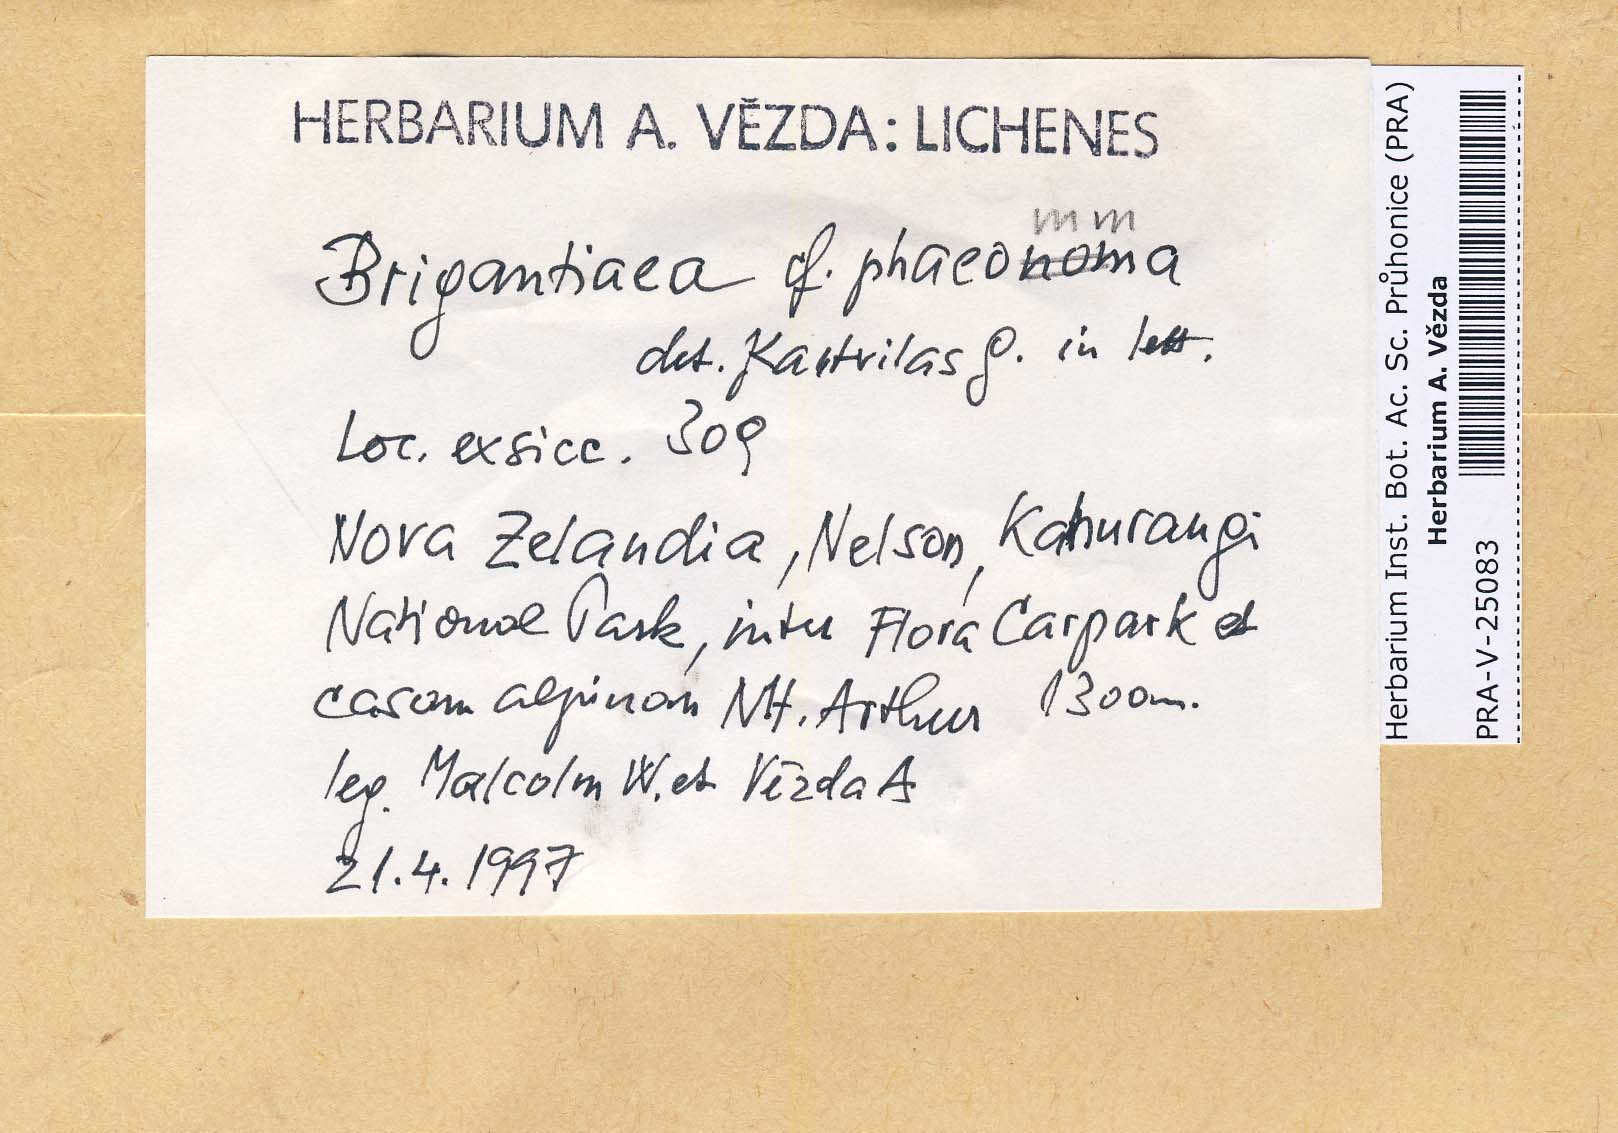 HERBARIUM A. VĚZDA: LICHENES
mm
Brigantiaea cf. phaeonoma
det. Kantvilas G. in lett.
Loc. exsicc. 309
Nova Zelandia, Nelson, Kahurangi
National Park, inter Flora Carpark et
casam alpinam Mt. Arthur 1300m.
leg. Malcolm W. et Vězda A
21.4.1997
Herbarium Inst. Bot. Ac. Sc. Průhonice (PRA)
Herbarium A. Vězda
PRA-V-25083